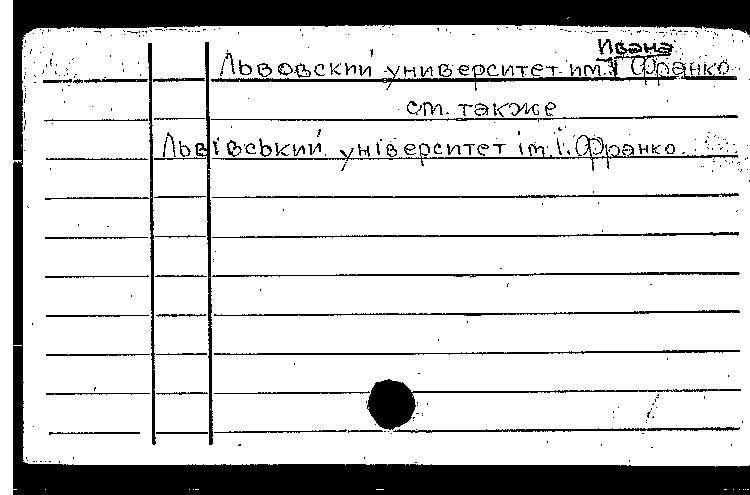 Ивана
Львовский университет им. І Франко
см. также
Львівський університет ім. І. Франко